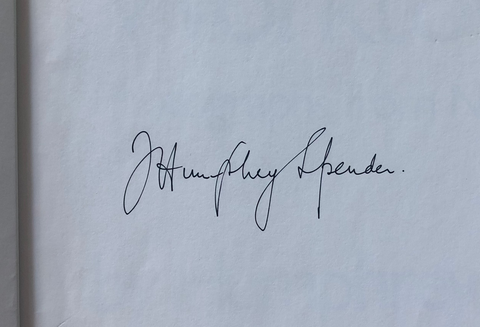 J Humphrey Spender.